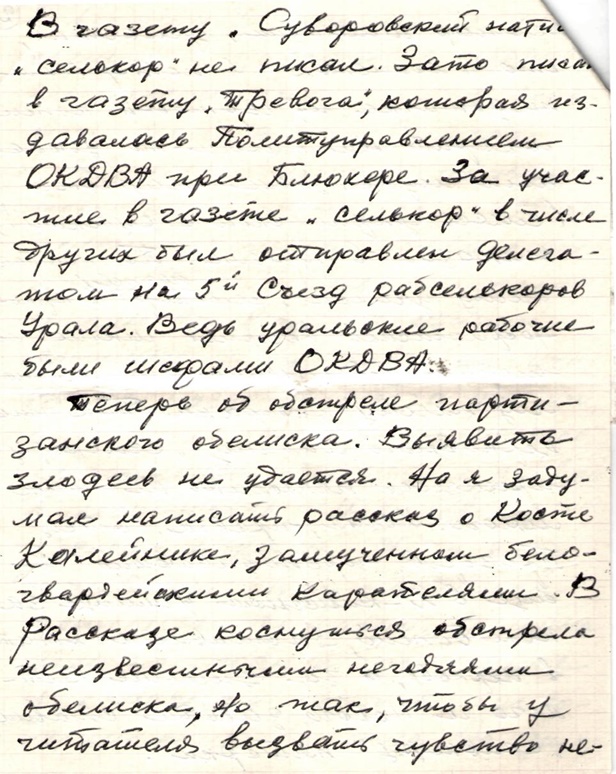 В газету „Суворовский нати
„селькор" не писал. Зато писал
в газету „Тревога", которая из-
давалась Политуправлением
ОКДВА при Блюхере. За учас-
тие в газете „селькор" в числе
других был отправлен делега-
том на 5й Съезд рабселькоров
Урала. Ведь уральские рабочие
были шефами ОКДВА.
Теперь об обстреле парти-
занского обелиска. Выявить
злодеев не удается. Но я заду-
мал написать рассказ о Косте
Калейнике, замученном бело-
гвардейскими карателями. В
Рассказе коснуться обстрела
неизвестными негодяями
обелиска, но так, чтобы у
читателя вызвать чувство не-